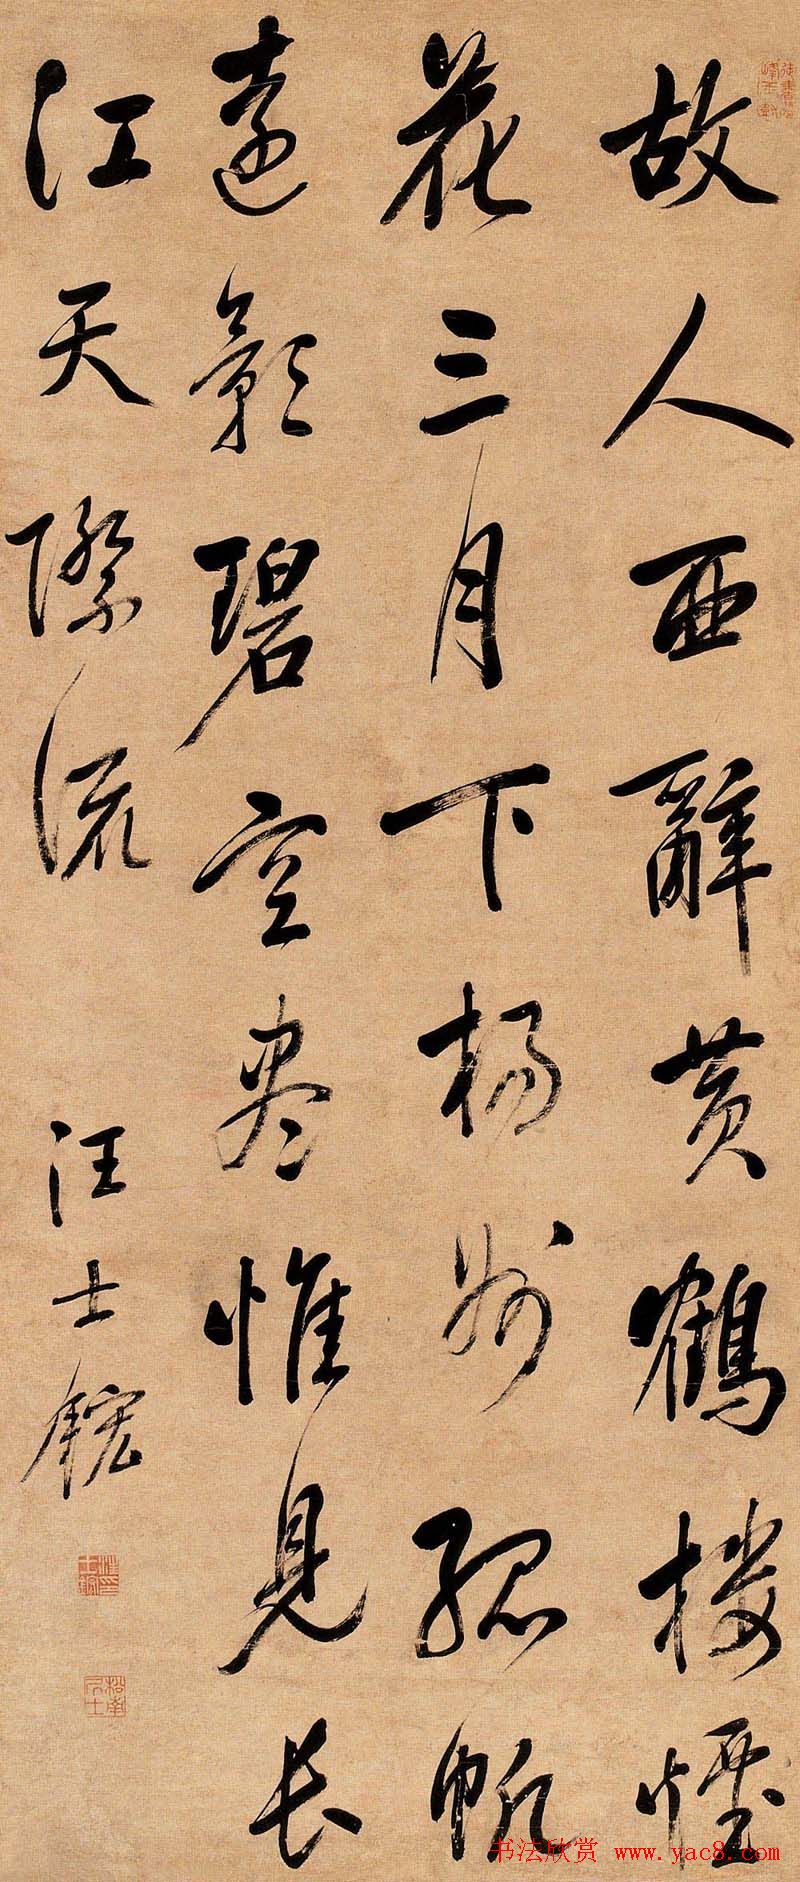 故人西辭黃鶴樓煙
花三月下楊州孤帆
遠影碧空盡惟見長
江天際流
汪士鋐
汪士鋐印
松南居士
书法欣赏 www.yac8.com